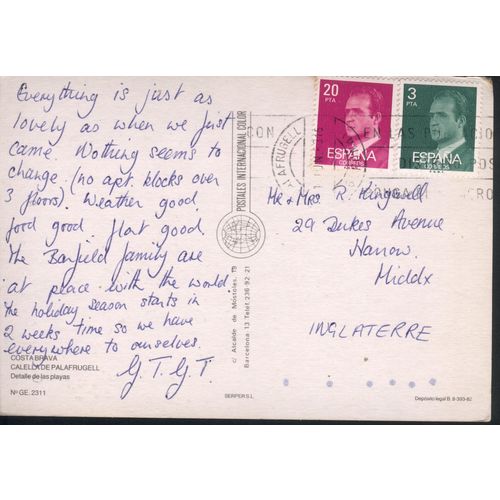 Everything is just as
lovely as when we just
came. Nothing seems to
change (no apt. blocks over
3 floors). Weather good
food good. flat good.
The Banfield family are
at peace with the world.
The holiday season starts in
2 weeks time so we have
everywhere to ourselves.
G.T.G.T.
COSTA BRAVA
CALELLA DE PALAFRUGELL
Detalle de las playas
Nº GE. 2311
POSTALES INTERNACIONAL COLOR
c/ Alcalde de Móstoles, 19
Barcelona 13 Telef. 236-92 21
SERPER S L
20
PTA
ESPAÑA
CORREOS
3
PTA
ESPAÑA
CORREOS
PALAFRUGELL
CON
Mr & Mrs R.
29 Dukes Avenue
Harrow
Middx
INGLATERRE
Depósito legal B. 8-393-82